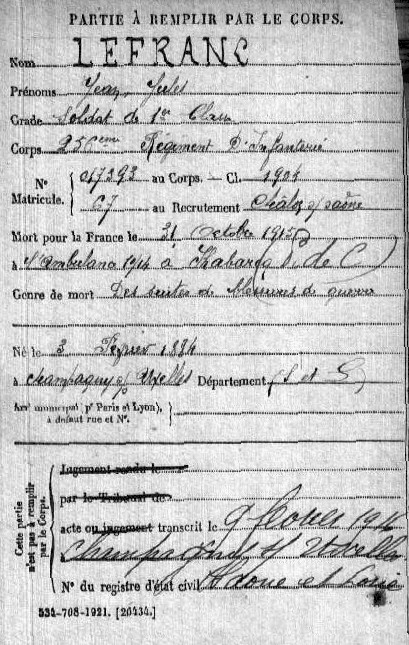 PARTIE À REMPLIR PAR LE CORPS.
Nom LEFRANC
Prénoms Jean Jules
Grade Soldat de 1re Classe
Corps 256eme Régiment D'Infanterie
Nº 017293 au Corps. — Cl. 1904
Matricule. 67 au Recrutement Châlon s/ Saône
Mort pour la France le 31 Octobre 1915
à l'Ambulance 1/14 à P. de C
Genre de mort Des suites de blessures de guerre
Né le 3 Février 1884
à Champagny s/ Uxelles Département (S et L)
Arr municipal (pr Paris et Lyon),
à défaut rue et Nº.
Cette partie
n'est pas à remplir
par le Corps.
Jugement rendu le
par le Tribunal de
acte ou jugement transcrit le 9
s/ Uxelles
Nº du registre d'état civil
534-708-1921. [26434.]